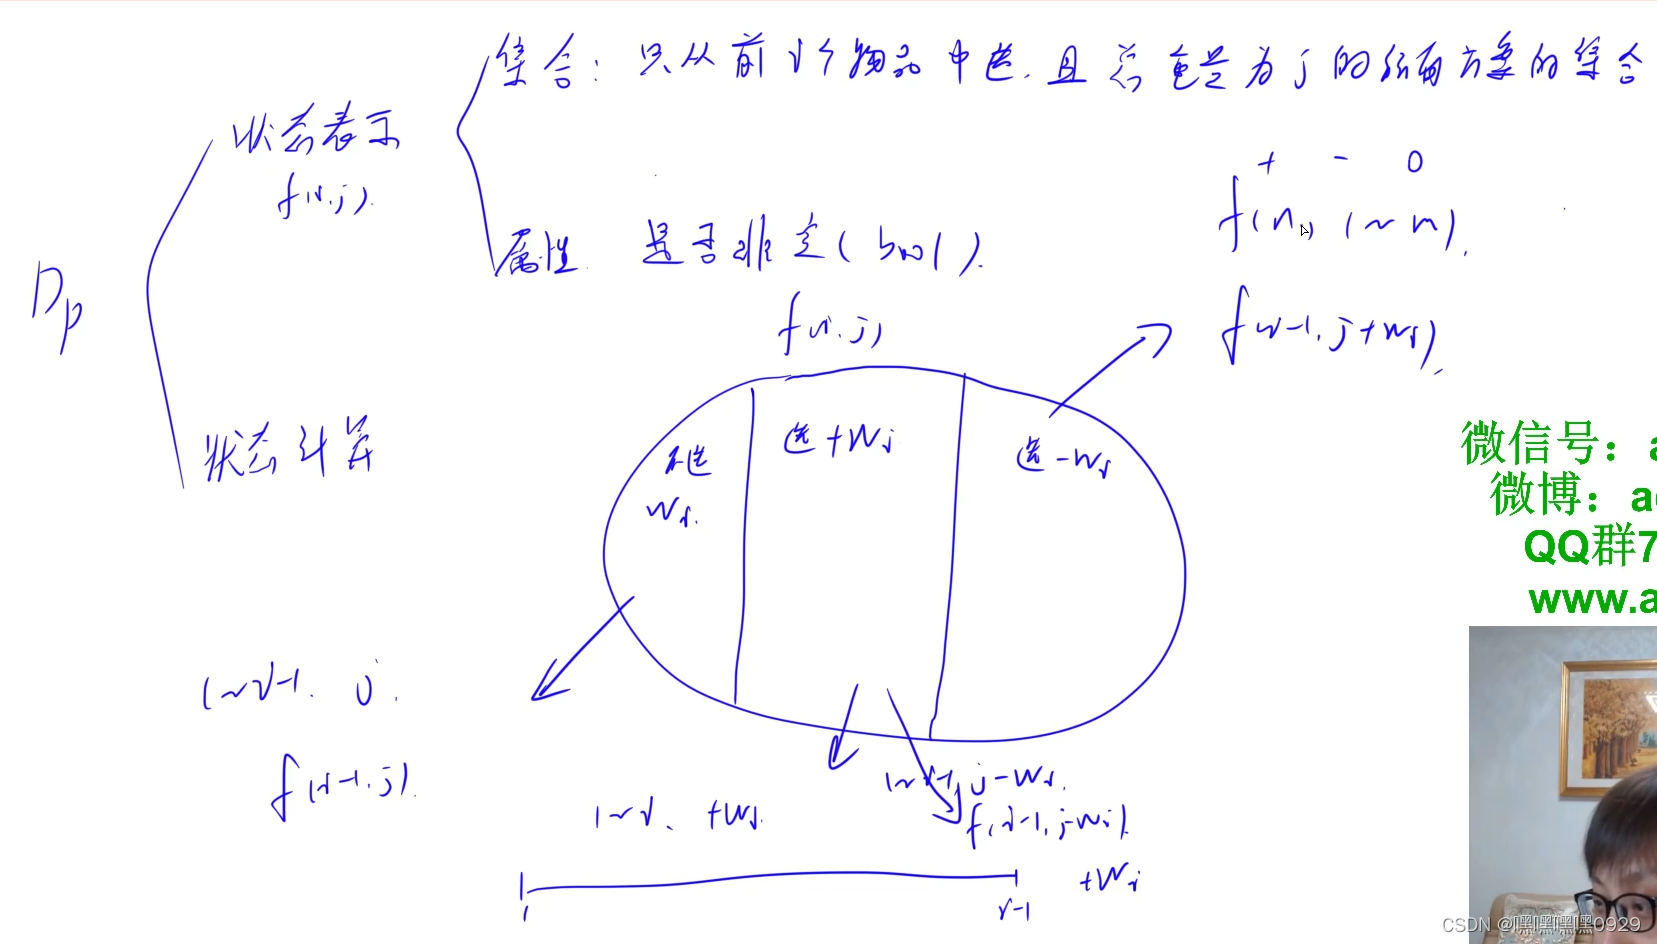 集合：只从前i个物品中选，且总重量为j的所有方案的集合
状态表示
f(i,j).
属性 是否非空(bool).
+ - 0
f(n, 1~m).
Dp
f(i,j)
f(i-1, j+wi).
状态计算
不选
wi.
选+wi
选-wi
1~i-1. j.
f(i-1,j).
1~i. +wi.
1~i-1, j-wi.
f(i-1, j-wi).
1
i-1
+wi
微信号：a
微博：a
QQ群7
www.a
CSDN @嘿嘿嘿嘿0929